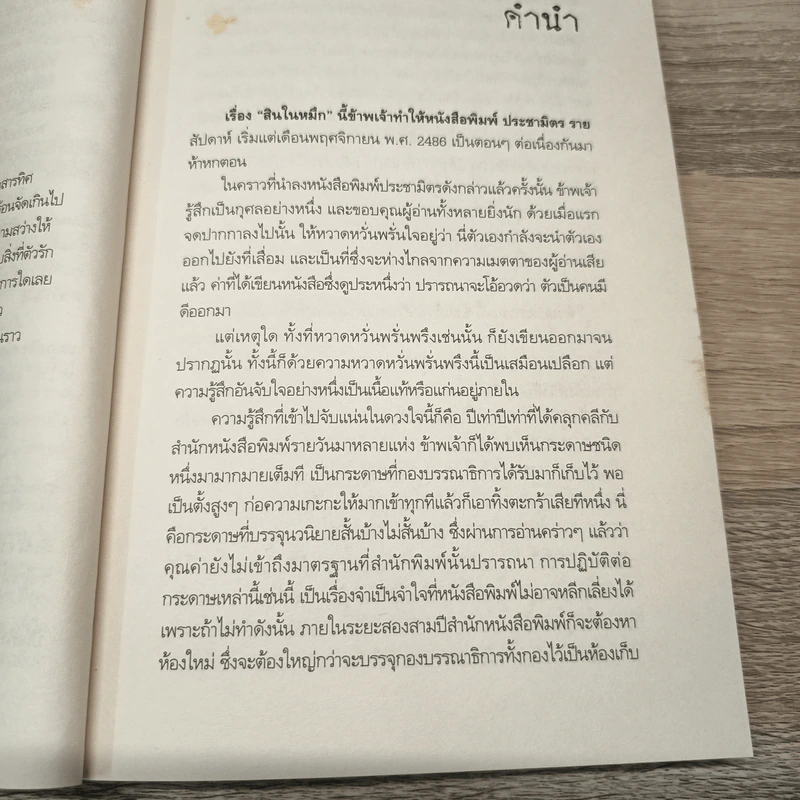 สารทิศ
้อนจัดเกินไป
ามสว่างให้
ยสิ่งที่ตัวรัก
การใดเลย
นราว
คำนำ
เรื่อง “สินในหมึก” นี้ข้าพเจ้าทำให้หนังสือพิมพ์ ประชามิตร ราย
สัปดาห์ เริ่มแต่เดือนพฤศจิกายน พ.ศ. 2486 เป็นตอนๆ ต่อเนื่องกันมา
ห้าหกตอน
ในคราวที่นำลงหนังสือพิมพ์ประชามิตรดังกล่าวแล้วครั้งนั้น ข้าพเจ้า
รู้สึกเป็นกุศลอย่างหนึ่ง และขอบคุณผู้อ่านทั้งหลายยิ่งนัก ด้วยเมื่อแรก
จดปากกาลงไปนั้น ให้หวาดหวั่นพรั่นใจอยู่ว่า นี่ตัวเองกำลังจะนำตัวเอง
ออกไปยังที่เสื่อม และเป็นที่ซึ่งจะห่างไกลจากความเมตตาของผู้อ่านเสีย
แล้ว ค่าที่ได้เขียนหนังสือซึ่งดูประหนึ่งว่า ปรารถนาจะโอ้อวดว่า ตัวเป็นคนมี
ดีออกมา
แต่เหตุใด ทั้งที่หวาดหวั่นพรั่นพรึงเช่นนั้น ก็ยังเขียนออกมาจน
ปรากฏนั้น ทั้งนี้ก็ด้วยความหวาดหวั่นพรั่นพรึงนี้เป็นเสมือนเปลือก แต่
ความรู้สึกอันจับใจอย่างหนึ่งเป็นเนื้อแท้หรือแก่นอยู่ภายใน
ความรู้สึกที่เข้าไปจับแน่นในดวงใจนี้ก็คือ ปีเท่าปีเท่าที่ได้คลุกคลีกับ
สำนักหนังสือพิมพ์รายวันมาหลายแห่ง ข้าพเจ้าก็ได้พบเห็นกระดาษชนิด
หนึ่งมามากมายเต็มที เป็นกระดาษที่กองบรรณาธิการได้รับมาก็เก็บไว้ พอ
เป็นตั้งสูงๆ ก่อความเกะกะให้มากเข้าทุกทีแล้วก็เอาทิ้งตะกร้าเสียทีหนึ่ง นี่
คือกระดาษที่บรรจุนวนิยายสั้นบ้างไม่สั้นบ้าง ซึ่งผ่านการอ่านคร่าวๆ แล้วว่า
คุณค่ายังไม่เข้าถึงมาตรฐานที่สำนักพิมพ์นั้นปรารถนา การปฏิบัติต่อ
กระดาษเหล่านี้เช่นนี้ เป็นเรื่องจำเป็นจำใจที่หนังสือพิมพ์ไม่อาจหลีกเลี่ยงได้
เพราะถ้าไม่ทำดังนั้น ภายในระยะสองสามปีสำนักหนังสือพิมพ์ก็จะต้องหา
ห้องใหม่ ซึ่งจะต้องใหญ่กว่าจะบรรจุกองบรรณาธิการทั้งกองไว้เป็นห้องเก็บ